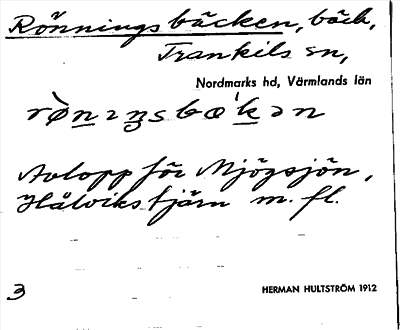 Rönningsbäcken, bäck,
Trankils sn,
Nordmarks hd, Värmlands län
Avlopp för Mjögsjön,
Hålvikstjärn m. fl.
3
HERMAN HULTSTRÖM 1912